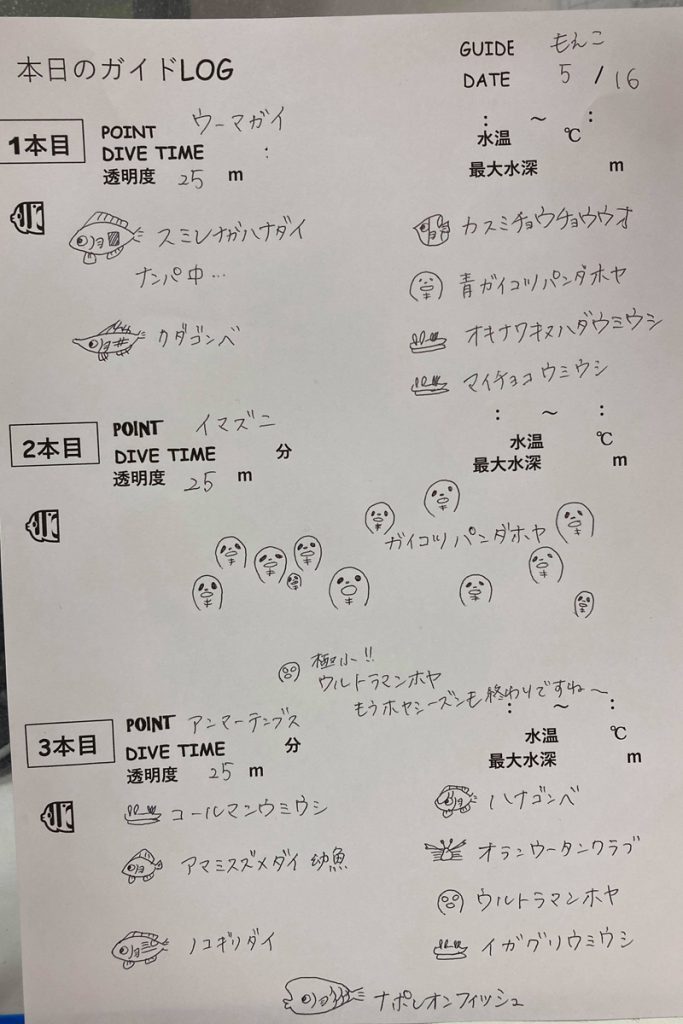 本日のガイドLOG
GUIDE もえこ
DATE 5 / 16
1本目
POINT ウーマガイ
DIVE TIME :
透明度 25 m
: ~ :
水温 ℃
最大水深 m
スミレナガハナダイ
ナンパ中…
クダゴンベ
カスミチョウチョウウオ
青ガイコツパンダホヤ
オキナワキヌハダウミウシ
マイチョコウミウシ
2本目
POINT イマズニ
DIVE TIME 分
透明度 25 m
: ~ :
水温 ℃
最大水深 m
ガイコツパンダホヤ
極小!!
ウルトラマンホヤ
もうホヤシーズンも終わりですね~
3本目
POINT アンマーテンブス
DIVE TIME 分
透明度 25 m
: ~ :
水温 ℃
最大水深 m
コールマンウミウシ
アマミスズメダイ 幼魚
ノコギリダイ
ハナゴンベ
オランウータンクラブ
ウルトラマンホヤ
イガグリウミウシ
ナポレオンフィッシュ